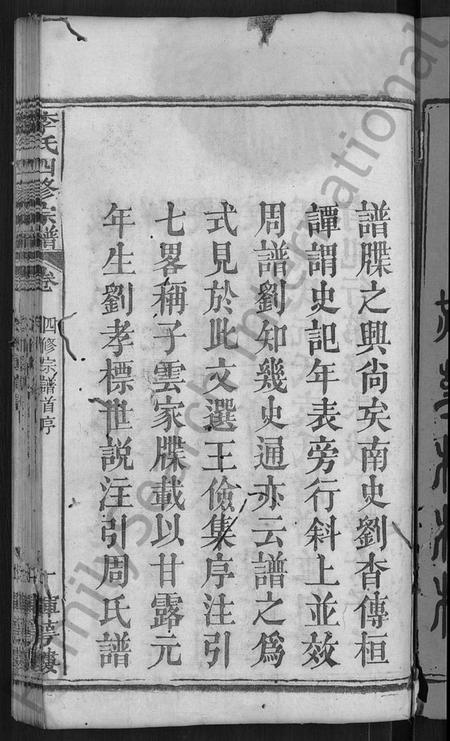 譜牒之興尚矣南史劉杳傳桓
譚謂史記年表旁行斜上並效
周譜劉知幾史通亦云譜之爲
式見於此文選王儉集序注引
七畧稱子雲家牒載以甘露元
年生劉孝標世說注引周氏譜
李氏四修宗譜
卷
四修宗譜首序
FamilySearch International